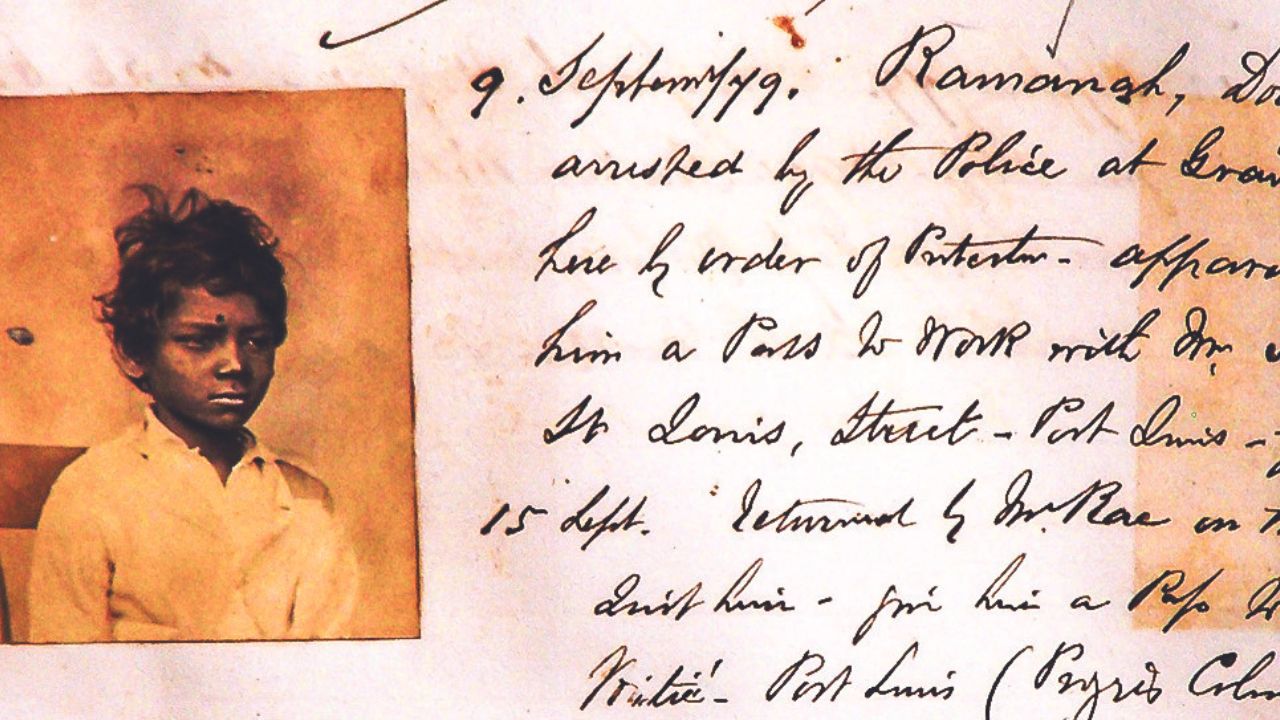 9. Septem/79. Ramanah, Do
arrested by the Police at Gra
here by order of Protector - appar
him a Pass to Work with Mr
St Louis, Street - Port Louis -
15 Sept. Returned by Mr. Rae on
Quit him - give him a Pass to
Port Louis (